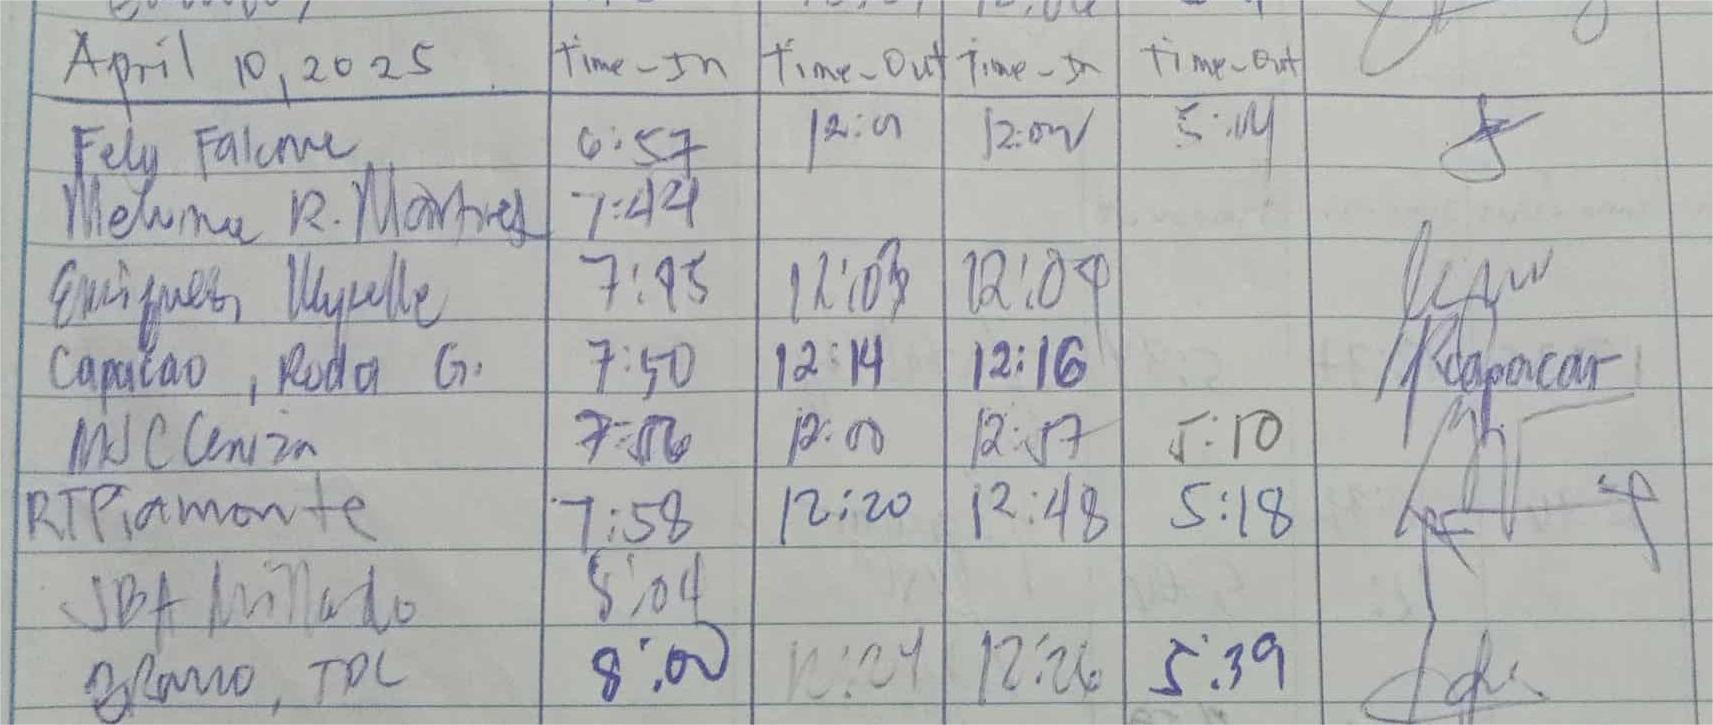 April 10, 2025 Time-In Time-Out Time-In Time-Out
Fely Falcone 6:57 12:01 12:02 5:14
R. Martires 7:44
Enriquez, 7:45 12:03 12:04
Capacao, Roda G. 7:50 12:14 12:16 Rcapacao
MJC Ceniza 7:56 12:00 12:57 5:10
RTPiamonte 7:58 12:20 12:48 5:18
JBA Millado 8:04
TDC 8:00 12:24 12:26 5:39